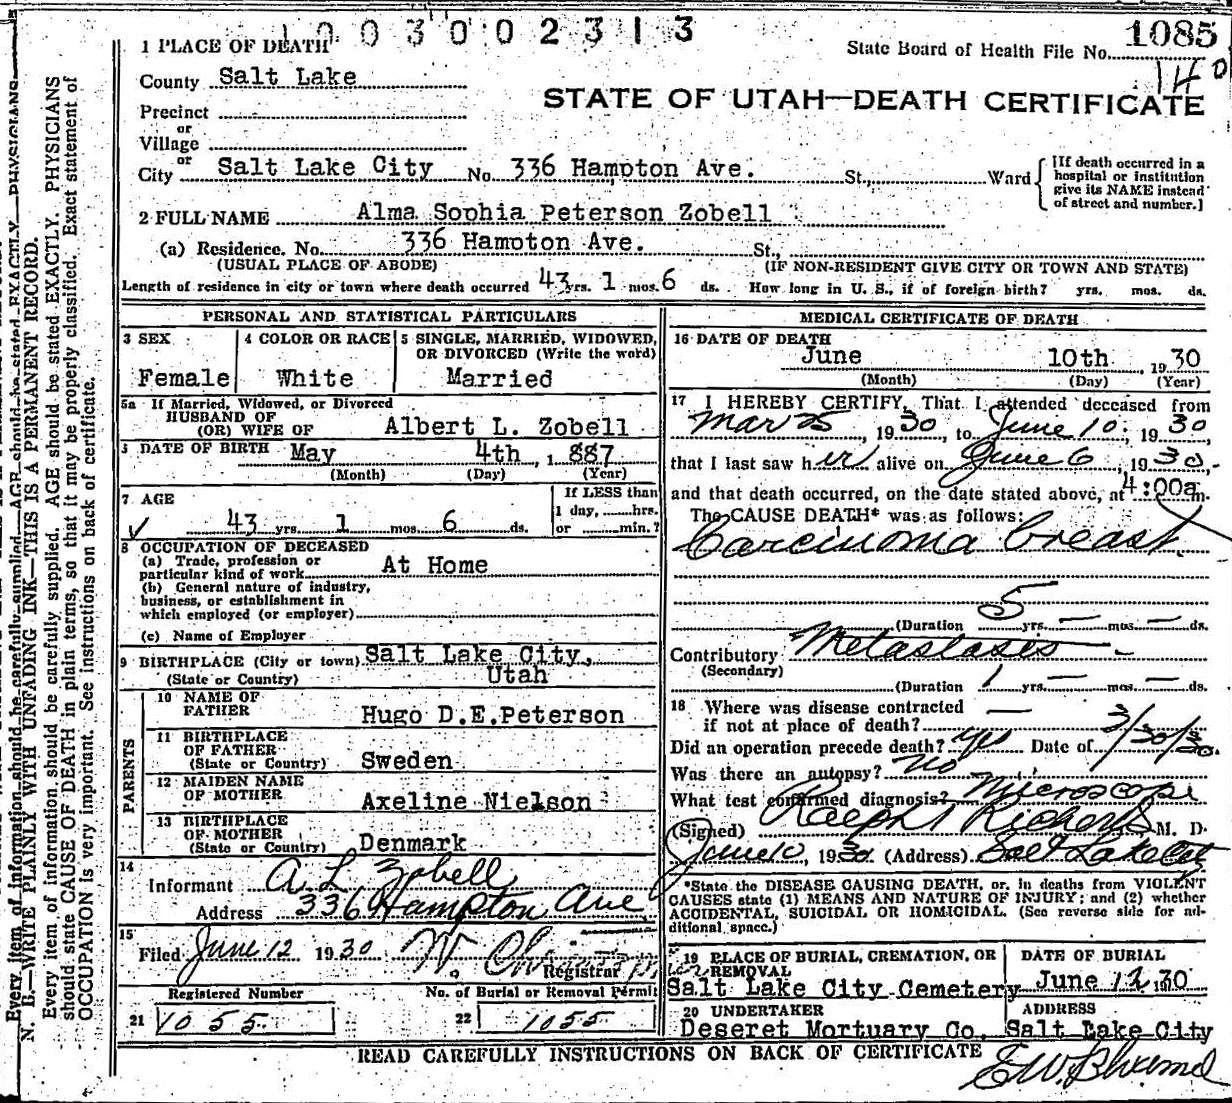 1003002313
1 PLACE OF DEATH
State Board of Health File No. 1085
140
County Salt Lake
STATE OF UTAH—DEATH CERTIFICATE
Precinct
or
Village
or
City Salt Lake City No. 336 Hampton Ave. St., Ward
[If death occurred in a
hospital or institution
give its NAME instead
of street and number.]
2 FULL NAME Alma Sophia Peterson Zobell
(a) Residence. No. 336 Hampton Ave. St.,
(USUAL PLACE OF ABODE) (IF NON-RESIDENT GIVE CITY OR TOWN AND STATE)
Length of residence in city or town where death occurred 43 yrs. 1 mos. 6 ds. How long in U. S., if of foreign birth? yrs. mos. ds.
PERSONAL AND STATISTICAL PARTICULARS
3 SEX
Female
4 COLOR OR RACE
White
5 SINGLE, MARRIED, WIDOWED,
OR DIVORCED (Write the word)
Married
5a If Married, Widowed, or Divorced
HUSBAND OF
(OR) WIFE OF Albert L. Zobell
6 DATE OF BIRTH May 4th, 1887
(Month) (Day) (Year)
7 AGE
43 yrs. 1 mos. 6 ds.
If LESS than
1 day, hrs.
or min.?
8 OCCUPATION OF DECEASED
(a) Trade, profession or
particular kind of work At Home
(b) General nature of industry,
business, or establishment in
which employed (or employer)
(c) Name of Employer
9 BIRTHPLACE (City or town) Salt Lake City,
(State or Country) Utah
PARENTS
10 NAME OF
FATHER Hugo D.E.Peterson
11 BIRTHPLACE
OF FATHER
(State or Country) Sweden
12 MAIDEN NAME
OF MOTHER Axeline Nielson
13 BIRTHPLACE
OF MOTHER
(State or Country) Denmark
14
Informant A L Zobell
Address 336 Hampton Ave
15
Filed June 12 1930
Registrar
Registered Number
21 1055
No. of Burial or Removal Permit
22 1055
MEDICAL CERTIFICATE OF DEATH
16 DATE OF DEATH
June 10th, 1930
(Month) (Day) (Year)
17 I HEREBY CERTIFY, That I attended deceased from
Mar 25, 1930, to June 10, 1930
that I last saw her alive on June 6, 1930.
and that death occurred, on the date stated above, at 4:00a m.
The CAUSE DEATH* was as follows:
Carcinoma breast
(Duration 5 yrs. — mos. — ds.
Contributory Metastases
(Secondary)
(Duration 1 yrs. — mos. — ds.
18 Where was disease contracted
if not at place of death? —
Did an operation precede death? yes Date of 3/30/30.
Was there an autopsy? No
What test confirmed diagnosis? Microscope
(Signed) Ralph Richards M. D.
June 10, 1930. (Address) Salt Lake City
*State the DISEASE CAUSING DEATH, or, in deaths from VIOLENT
CAUSES state (1) MEANS AND NATURE OF INJURY; and (2) whether
ACCIDENTAL, SUICIDAL OR HOMICIDAL. (See reverse side for additional space.)
19 PLACE OF BURIAL, CREMATION, OR
REMOVAL
Salt Lake City Cemetery
DATE OF BURIAL
June 12 1930
20 UNDERTAKER
Deseret Mortuary Co.
ADDRESS
Salt Lake City
READ CAREFULLY INSTRUCTIONS ON BACK OF CERTIFICATE
N. B.—WRITE PLAINLY WITH UNFADING INK—THIS IS A PERMANENT RECORD.
Every item of information should be carefully supplied. AGE should be stated EXACTLY. PHYSICIANS
should state CAUSE OF DEATH in plain terms, so that it may be properly classified. Exact statement of
OCCUPATION is very important. See instructions on back of certificate.